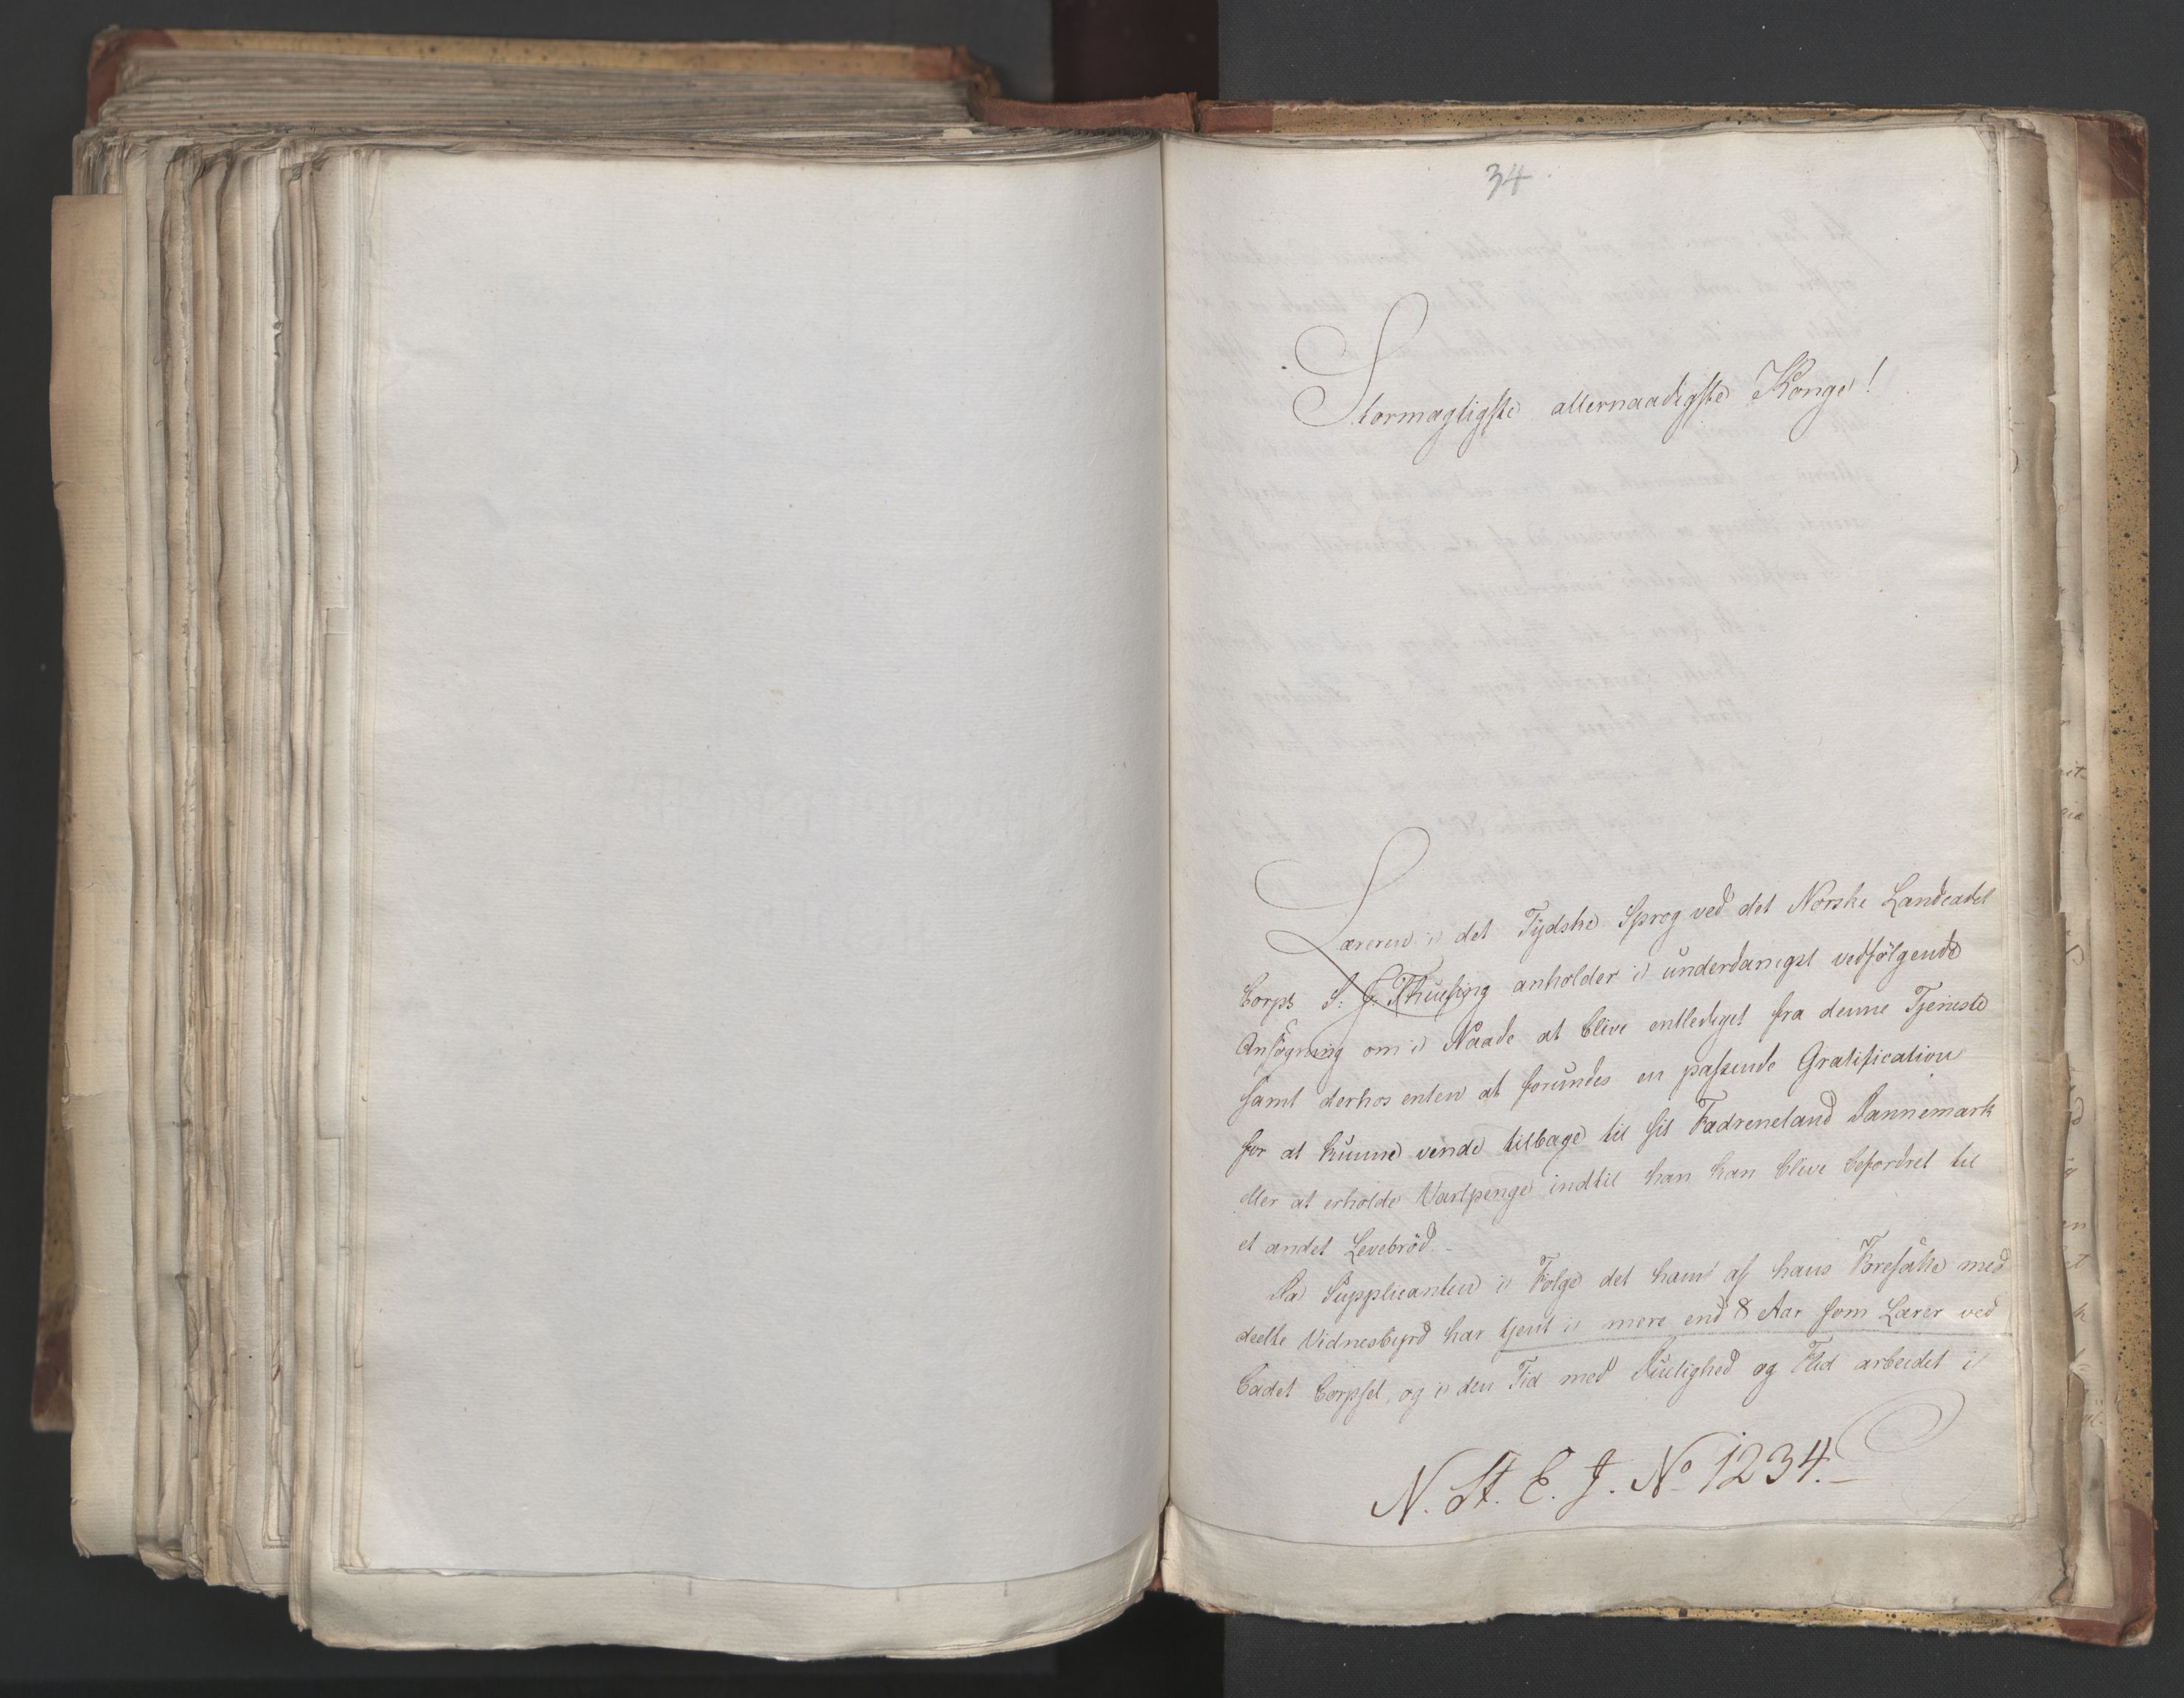 34
Stormagtigste allernaadigste Konge!
Læreren i det Tydske Sprog ved det Norske Landcadet
Corps S: J: Thuesing anholder i underdanigst vedfölgende
Ansögning om i Naade at blive entlediget fra denne Tjeneste
samt derhos enten at forundes en passende Gratification
for at kunne vende tilbage til sit Fædreneland Dannemark
eller at erholde Vartpenge indtil han kan blive befordret til
et andet Levebröd.
Da Supplicanten i Fölge det ham af hans Foresatte med
deelte Vidnesbyrd har tjent i mere end 8 Aar som Lærer ved
Cadet Corpset, og i den Tid med Duelighed og Flid arbeidet i
N. St. E. J. No 1234.